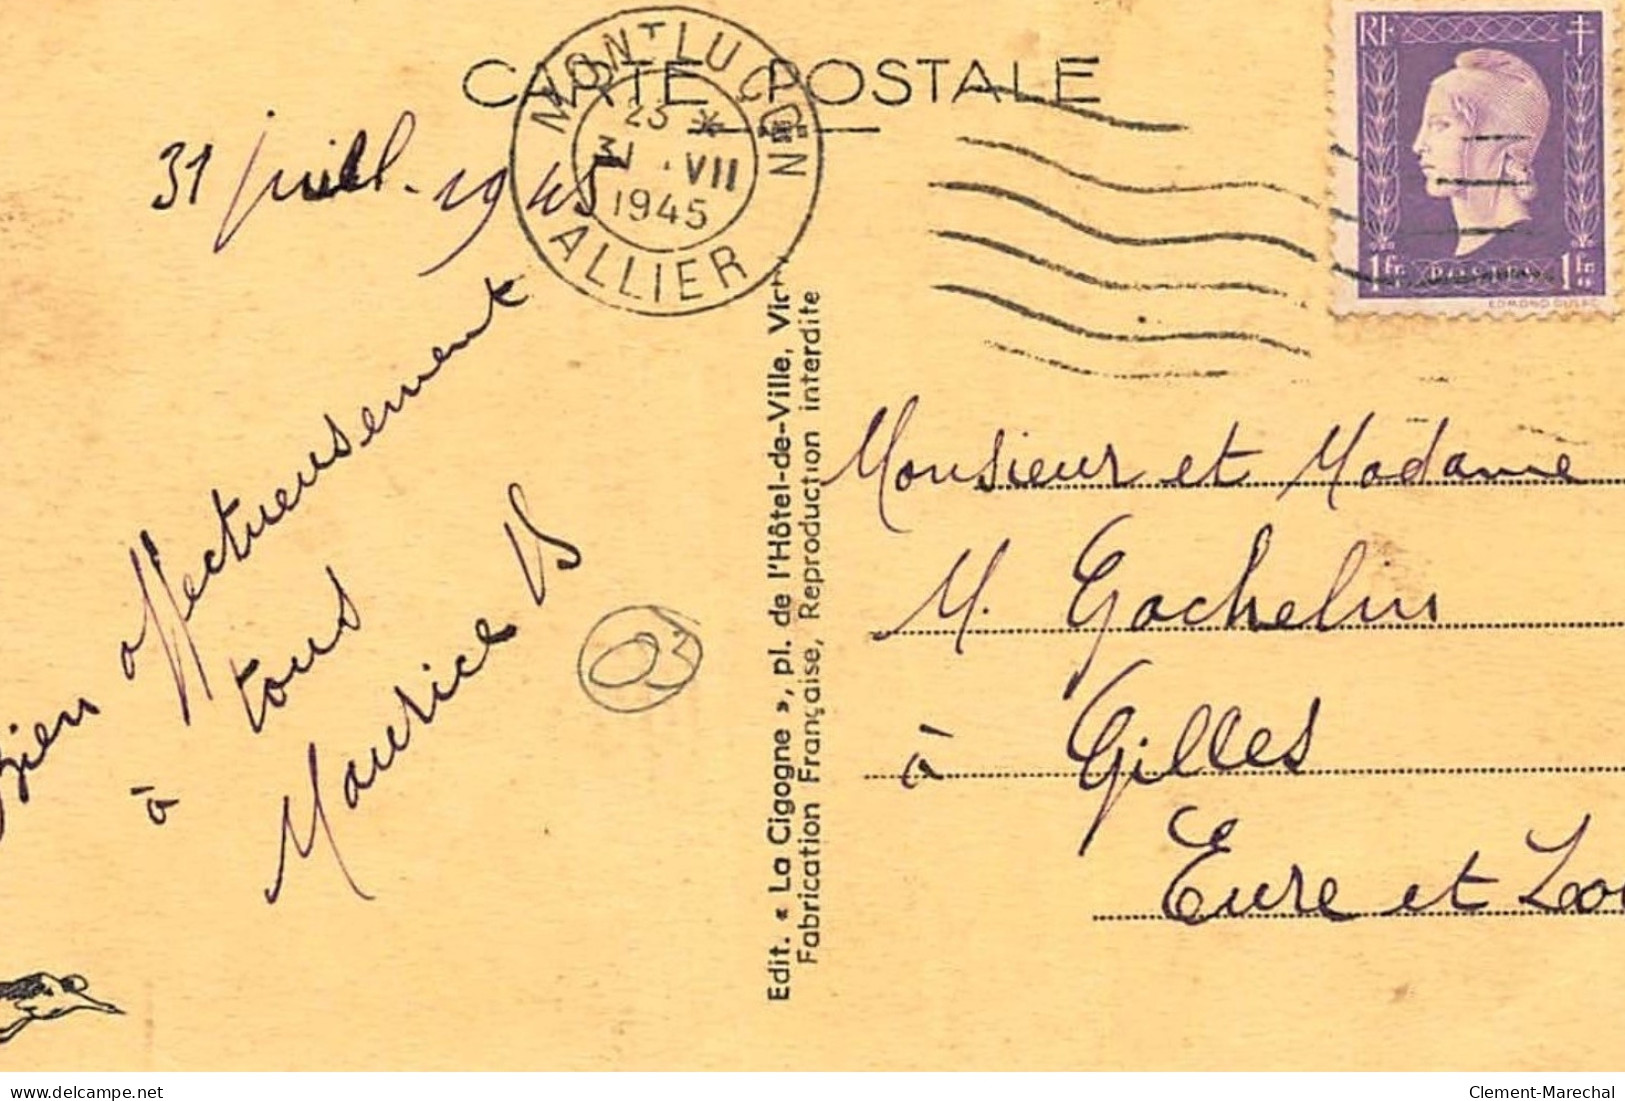 CARTE POSTALE
MONTLUCON
23 *
31 . VII
1945
ALLIER
RF
1 fr. 1 fr.
EDMOND DULAC
31 juill. 1945
Bien affectueusement
à tous
Maurice
03
Edit. « La Cigogne », pl. de l'Hôtel-de-Ville,
Fabrication Française, Reproduction interdite
Monsieur et Madame
M. Gochelin
à Gilles
Eure et Loi
delcampe.net
Clement-Marechal